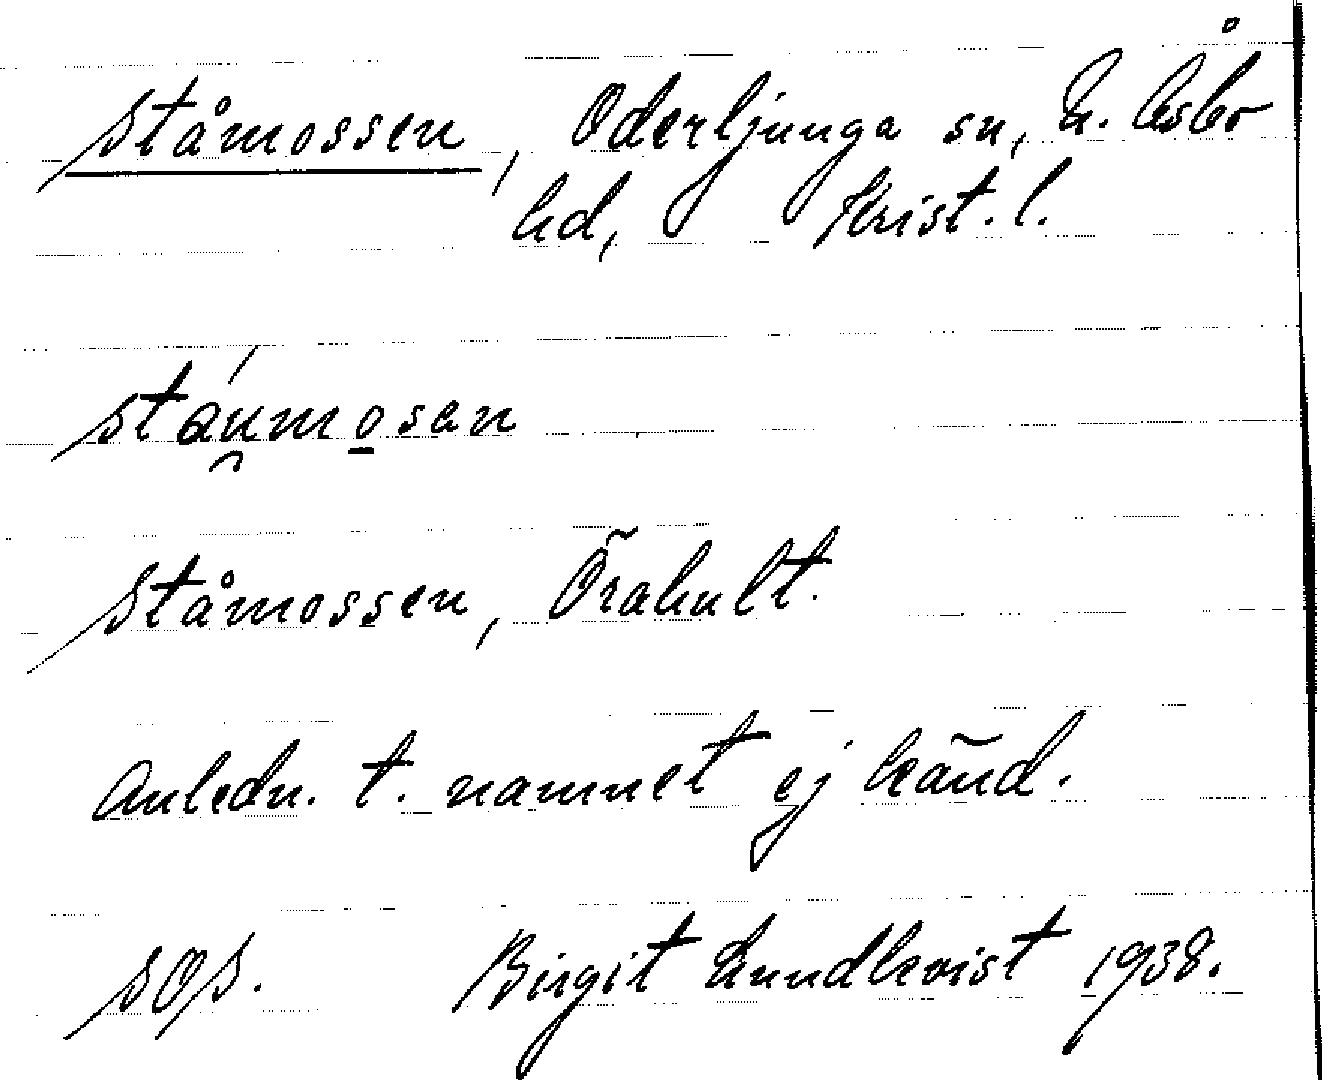 Ståmossen, Oderljunga sn, N. Åsbo
hd, Krist. l.
stáu̯mo̠sen
Ståmossen, Örahult.
Anledn. t. namnet ej känd.
SOS. Birgit Lundkvist 1938.